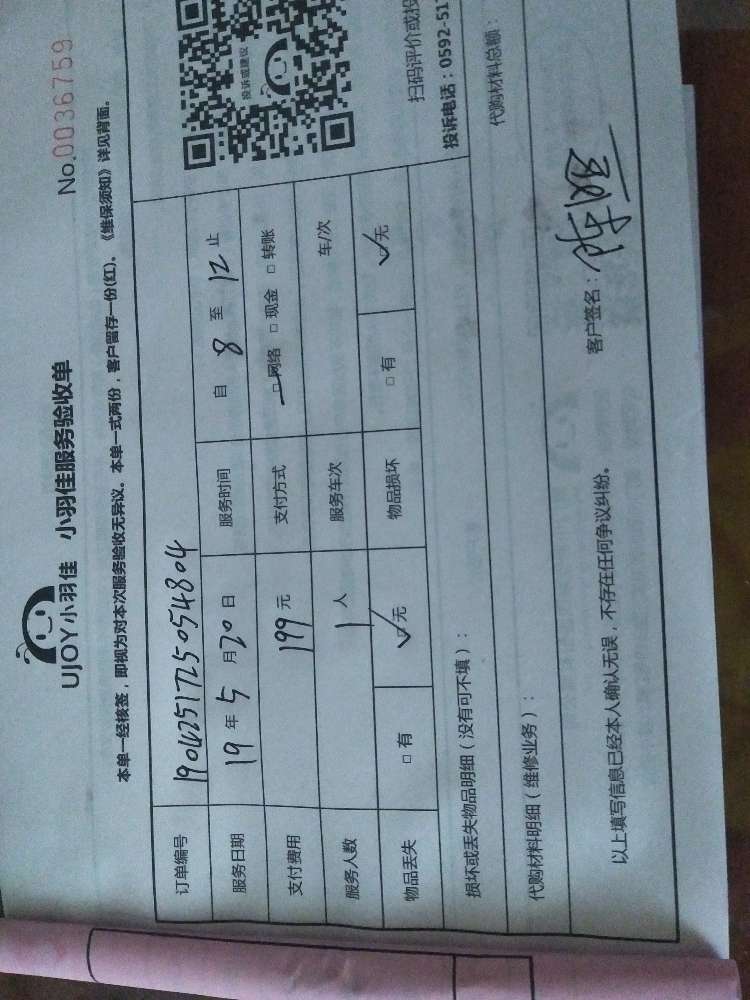 UJOY小羽佳 小羽佳服务验收单
No.0036759
本单一经核签，即视为对本次服务验收无异议。本单一式两份，客户留存一份(红)。《维保须知》详见背面。
订单编号 1904251725054804
服务日期 19 年 5 月 20 日 服务时间 自 8 至 12 止
支付费用 199 元 支付方式 □网络 □现金 □转账
服务人数 1 人 服务车次 车/次
物品丢失 □有 □无 物品损坏 □有 □无
投诉或建议
扫码评价或投
投诉电话：0592-517
损坏或丢失物品明细（没有可不填）：
代购材料明细（维修业务）： 代购材料总额：
以上填写信息已经本人确认无误，不存在任何争议纠纷。 客户签名：